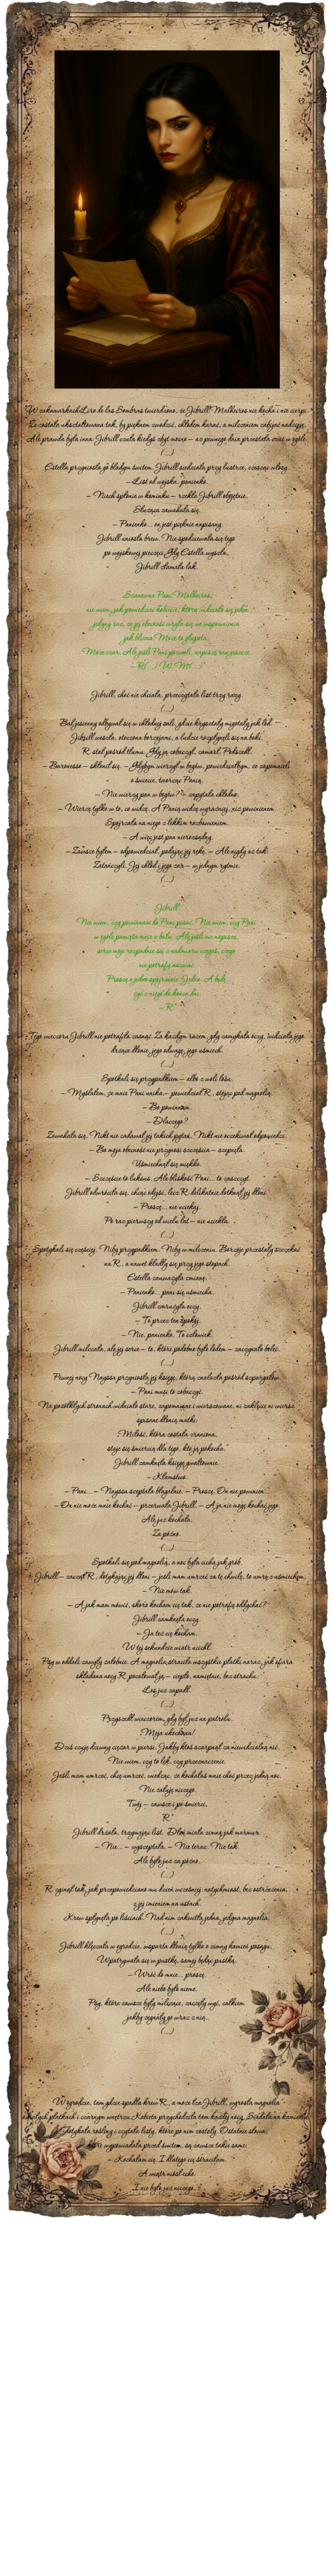 W zakamarkach Liro de las Sombras twierdzono, że Jibrill Malheiros nie kocha i nie cierpi.
Że została ukształtowana tak, by pięknem zwodzić, chłodem karać, a milczeniem zabijać nadzieję.
Ale prawda była inna. Jibrill czuła kiedyś zbyt mocno – aż pewnego dnia przestała czuć w ogóle.
(...)
Estella przyniosła go bladym świtem. Jibrill siedziała przy lustrze, czesząc włosy.
– List od wojska, panienko.
– Niech spłonie w kominku – rzekła Jibrill obojętnie.
Służąca zawahała się.
– Panienko... on jest pięknie napisany.
Jibrill uniosła brew. Nie spodziewała się tego
po wojskowej pieczęci. Gdy Estella wyszła,
Jibrill złamała lak.
Szanowna Pani Malheiros,
nie wiem, jak powiedzieć kobiecie, którą widziało się jeden
jedyny raz, że jej obecność wryła się we wspomnienia
jak blizna. Może to głupota.
Może czar. Ale jeśli Pani pozwoli, napiszę raz jeszcze.
– R(...) W. M(...)"
Jibrill, choć nie chciała, przeczytała list trzy razy.
(...)
Bal jesienny odbywał się w chłodnej sali, gdzie kryształy migotały jak lód.
Jibrill weszła, otoczona borzojami, a ludzie rozstąpili się na boki.
R. stał pośród tłumu. Gdy ją zobaczył, zamarł. Podszedł.
– Baronesso – skłonił się. – Gdybym wierzył w bogów, powiedziałbym, że zapomnieli
o świecie, tworząc Panią.
– Nie wierzy pan w bogów? – zapytała chłodno.
– Wierzę tylko w to, co widzę. A Panią widzę wyraźniej, niż powinienem.
Spojrzała na niego z lekkim rozbawieniem.
– A więc jest pan nierozsądny.
– Zawsze byłem – odpowiedział, podając jej rękę. – Ale nigdy aż tak.
Zatańczyli. Jej chłód i jego żar – w jednym rytmie.
(...)
Jibrill,
Nie wiem, czy powinienem do Pani pisać. Nie wiem, czy Pani
w ogóle pamięta mnie z balu. Ale jeśli nie napiszę,
serce moje rozpadnie się z nadmiaru czegoś, czego
nie potrafię nazwać.
Proszę o jedno spojrzenie. Jedno. A będę
żyć z niego do końca dni.
– R."
Tego wieczora Jibrill nie potrafiła zasnąć. Za każdym razem, gdy zamykała oczy, widziała jego
drżące dłonie, jego odwagę, jego uśmiech.
(...)
Spotkali się przypadkiem – albo z woli losu.
– Myślałem, że mnie Pani unika – powiedział R., stojąc pod magnolią.
– Bo powinnam.
– Dlaczego?
Zawahała się. Nikt nie zadawał jej takich pytań. Nikt nie oczekiwał odpowiedzi.
– Bo moja obecność nie przynosi szczęścia – szepnęła.
Uśmiechnął się miękko.
– Szczęście to luksus. Ale bliskość Pani... to zaszczyt.
Jibrill odwróciła się, chcąc odejść, lecz R. delikatnie dotknął jej dłoni.
– Proszę... nie uciekaj.
Po raz pierwszy od wielu lat – nie uciekła.
(...)
Spotykali się częściej. Niby przypadkiem. Niby w milczeniu. Borzoje przestały szczekać
na R., a nawet kładły się przy jego stopach.
Estella zauważyła zmianę.
– Panienko... pani się uśmiecha.
Jibrill zmrużyła oczy.
– To przez ten spokój.
– Nie, panienko. To człowiek.
Jibrill milczała, ale jej serce – to, które podobno było lodem – zaczynało boleć.
(...)
Pewnej nocy Nayssa przyniosła jej księgę, którą znalazła pośród szpargałów.
– Pani musi to zobaczyć.
Na pożółkłych stronach widniało stare, zapomniane i wierszowane, ni zaklęcie ni wiersz
spisane dłonią matki:
Miłość, która została zraniona,
staje się śmiercią dla tego, kto ją pokocha."
Jibrill zamknęła księgę gwałtownie.
– Kłamstwo.
– Pani... – Nayssa szeptała błagalnie. – Proszę. On nie powinien...
– On nie może mnie kochać – przerwała Jibrill. – A ja nie mogę kochać jego.
Ale już kochała.
Za późno.
(...)
Spotkali się pod magnolią, a noc była cicha jak grób.
– Jibrill – zaczął R., dotykając jej dłoni – jeśli mam umrzeć za tę chwilę, to umrę z uśmiechem.
– Nie mów tak.
– A jak mam mówić, skoro kocham cię tak, że nie potrafię oddychać?
Jibrill zamknęła oczy.
– Ja też cię kocham.
W tej sekundzie wiatr ucichł.
Psy w oddali zawyły żałobnie. A magnolia straciła wszystkie płatki naraz, jak ofiara
składana nocy. R. pocałował ją – ciepło, namiętnie, bez strachu.
Los już zapadł.
(...)
Przyszedł wieczorem, gdy był już na patrolu.
Moja ukochana!
Dziś czuję dziwny ciężar w piersi. Jakby ktoś szarpnął za niewidzialną nić.
Nie wiem, czy to lęk, czy przeznaczenie.
Jeśli mam umrzeć, chcę umrzeć, wiedząc, że kochałaś mnie choć przez jedną noc.
Nie żałuję niczego.
Twój – zawsze i po śmierci,
R."
Jibrill drżała, trzymając list. Dłoń miała zimną jak marmur.
– Nie... – wyszeptała. – Nie teraz. Nie tak.
Ale było już za późno.
(...)
R. zginął tak, jak przepowiedziano ma dzień wcześniej: natychmiast, bez ostrzeżenia,
z jej imieniem na ustach.
Krew spłynęła po liściach. Nad nim zakwitła jedna, jedyna magnolia.
(...)
Jibrill klęczała w ogrodzie, wsparta dłonią tylko o zimny kamień posągu.
Wpatrywała się w pustkę, samej będąc pustką.
– Wróć do mnie... proszę.
Ale niebo było nieme.
Psy, które zawsze były milczące, zaczęły wyć, całkiem
jakby żegnały go wraz z nią.
(...)
W ogrodzie, tam gdzie spadła krew R., a może łza Jibrill, wyrosła magnolia
o białych płatkach i czarnym wnętrzu. Kobieta przychodziła tam każdej nocy. Siadała na kamieniu.
Dotykała rośliny i czytała listy, które po nim zostały. Ostatnie słowa,
które wypowiadała przed świtem, są zawsze takie same:
– Kochałam cię. I dlatego cię straciłam.
A wiatr niósł echo.
I nie było już niczego.